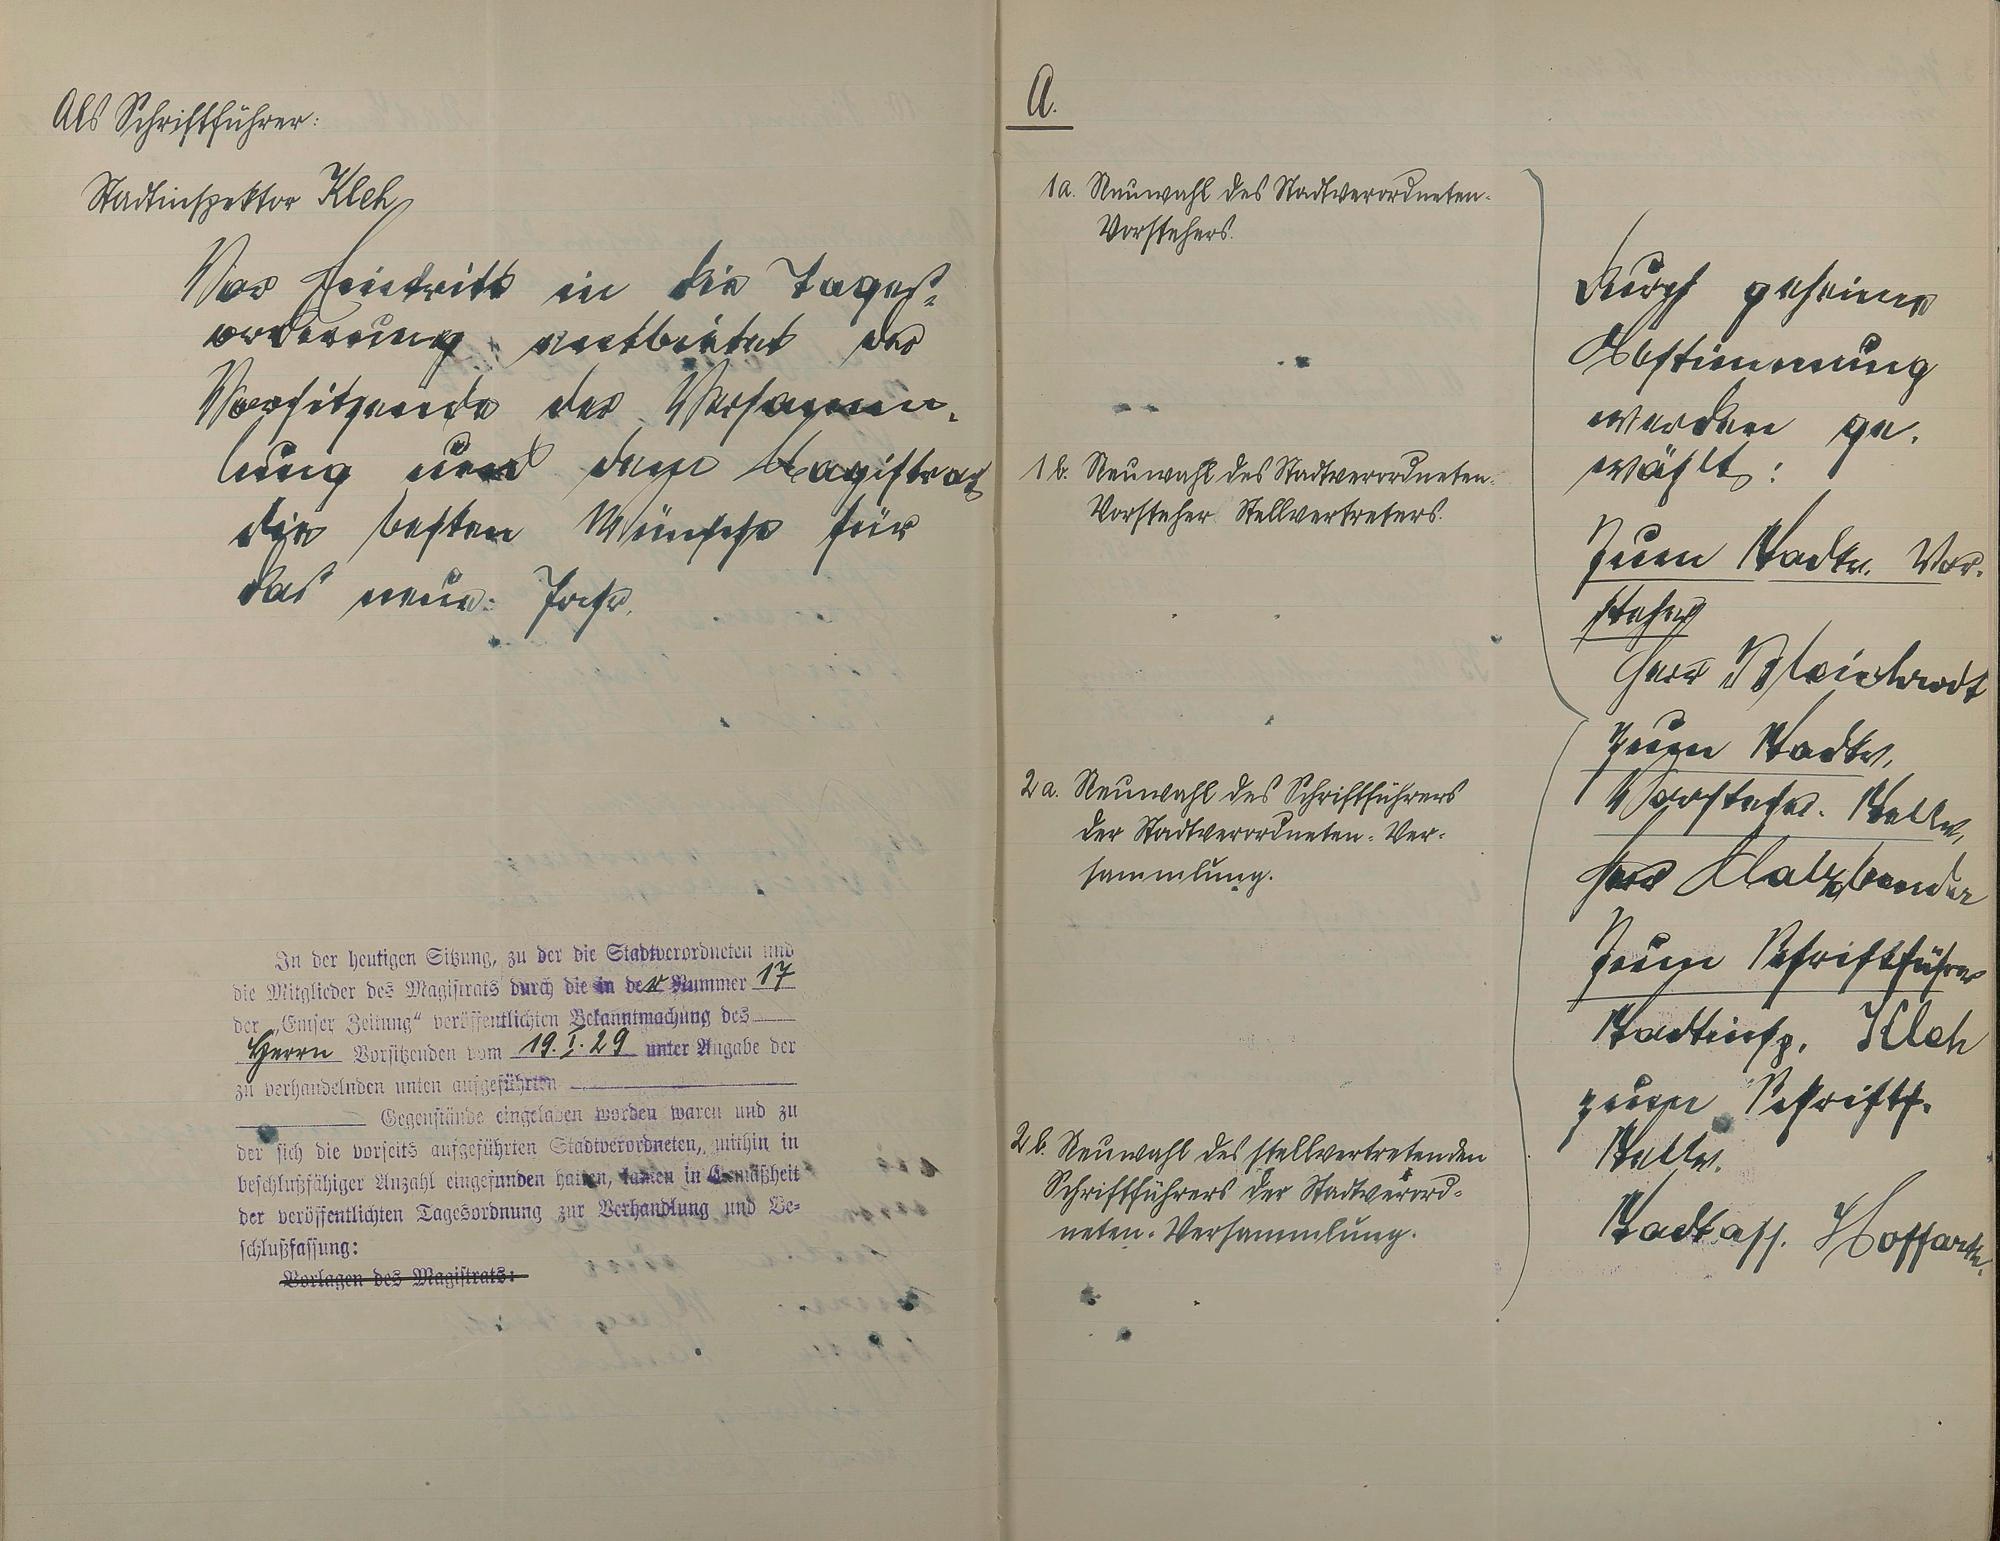 Als Schriftführer:
Stadtinspektor Kleh
Vor Eintritt in die Tages-
ordnung entbietet der
Vorsitzende der Versamm-
lung und dem Magistrat
die besten Wünsche für
das neue Jahr.
In der heutigen Sitzung, zu der die Stadtverordneten und
die Mitglieder des Magistrats durch die in der Nummer 17
der „Emser Zeitung“ veröffentlichten Bekanntmachung des
Herrn Vorsitzenden vom 19. I. 29 unter Angabe der
zu verhandelnden unten aufgeführten
Gegenstände eingeladen worden waren und zu
der sich die vorseits aufgeführten Stadtverordneten, mithin in
beschlußfähiger Anzahl eingefunden hatten, kamen in Gemäßheit
der veröffentlichten Tagesordnung zur Verhandlung und Be-
schlußfassung:
Vorlagen des Magistrats:
A.
1a. Neuwahl des Stadtverordneten-
Vorstehers.
1b. Neuwahl des Stadtverordneten-
Vorsteher Stellvertreters.
2a. Neuwahl des Schriftführers
der Stadtverordneten-Ver-
sammlung.
2b. Neuwahl des stellvertretenden
Schriftführers der Stadtverord-
neten-Versammlung.
Durch geheime
Abstimmung
werden ge-
wählt:
Zum Stadtv. Vor-
steher
Herr
Zum Stadtv.
Vorsteher. Stellv.
Herr
Zum Schriftführer
Stadtinsp. Kleh
zum Schriftf.
Stellv.
Stadtass. Hoffarth.